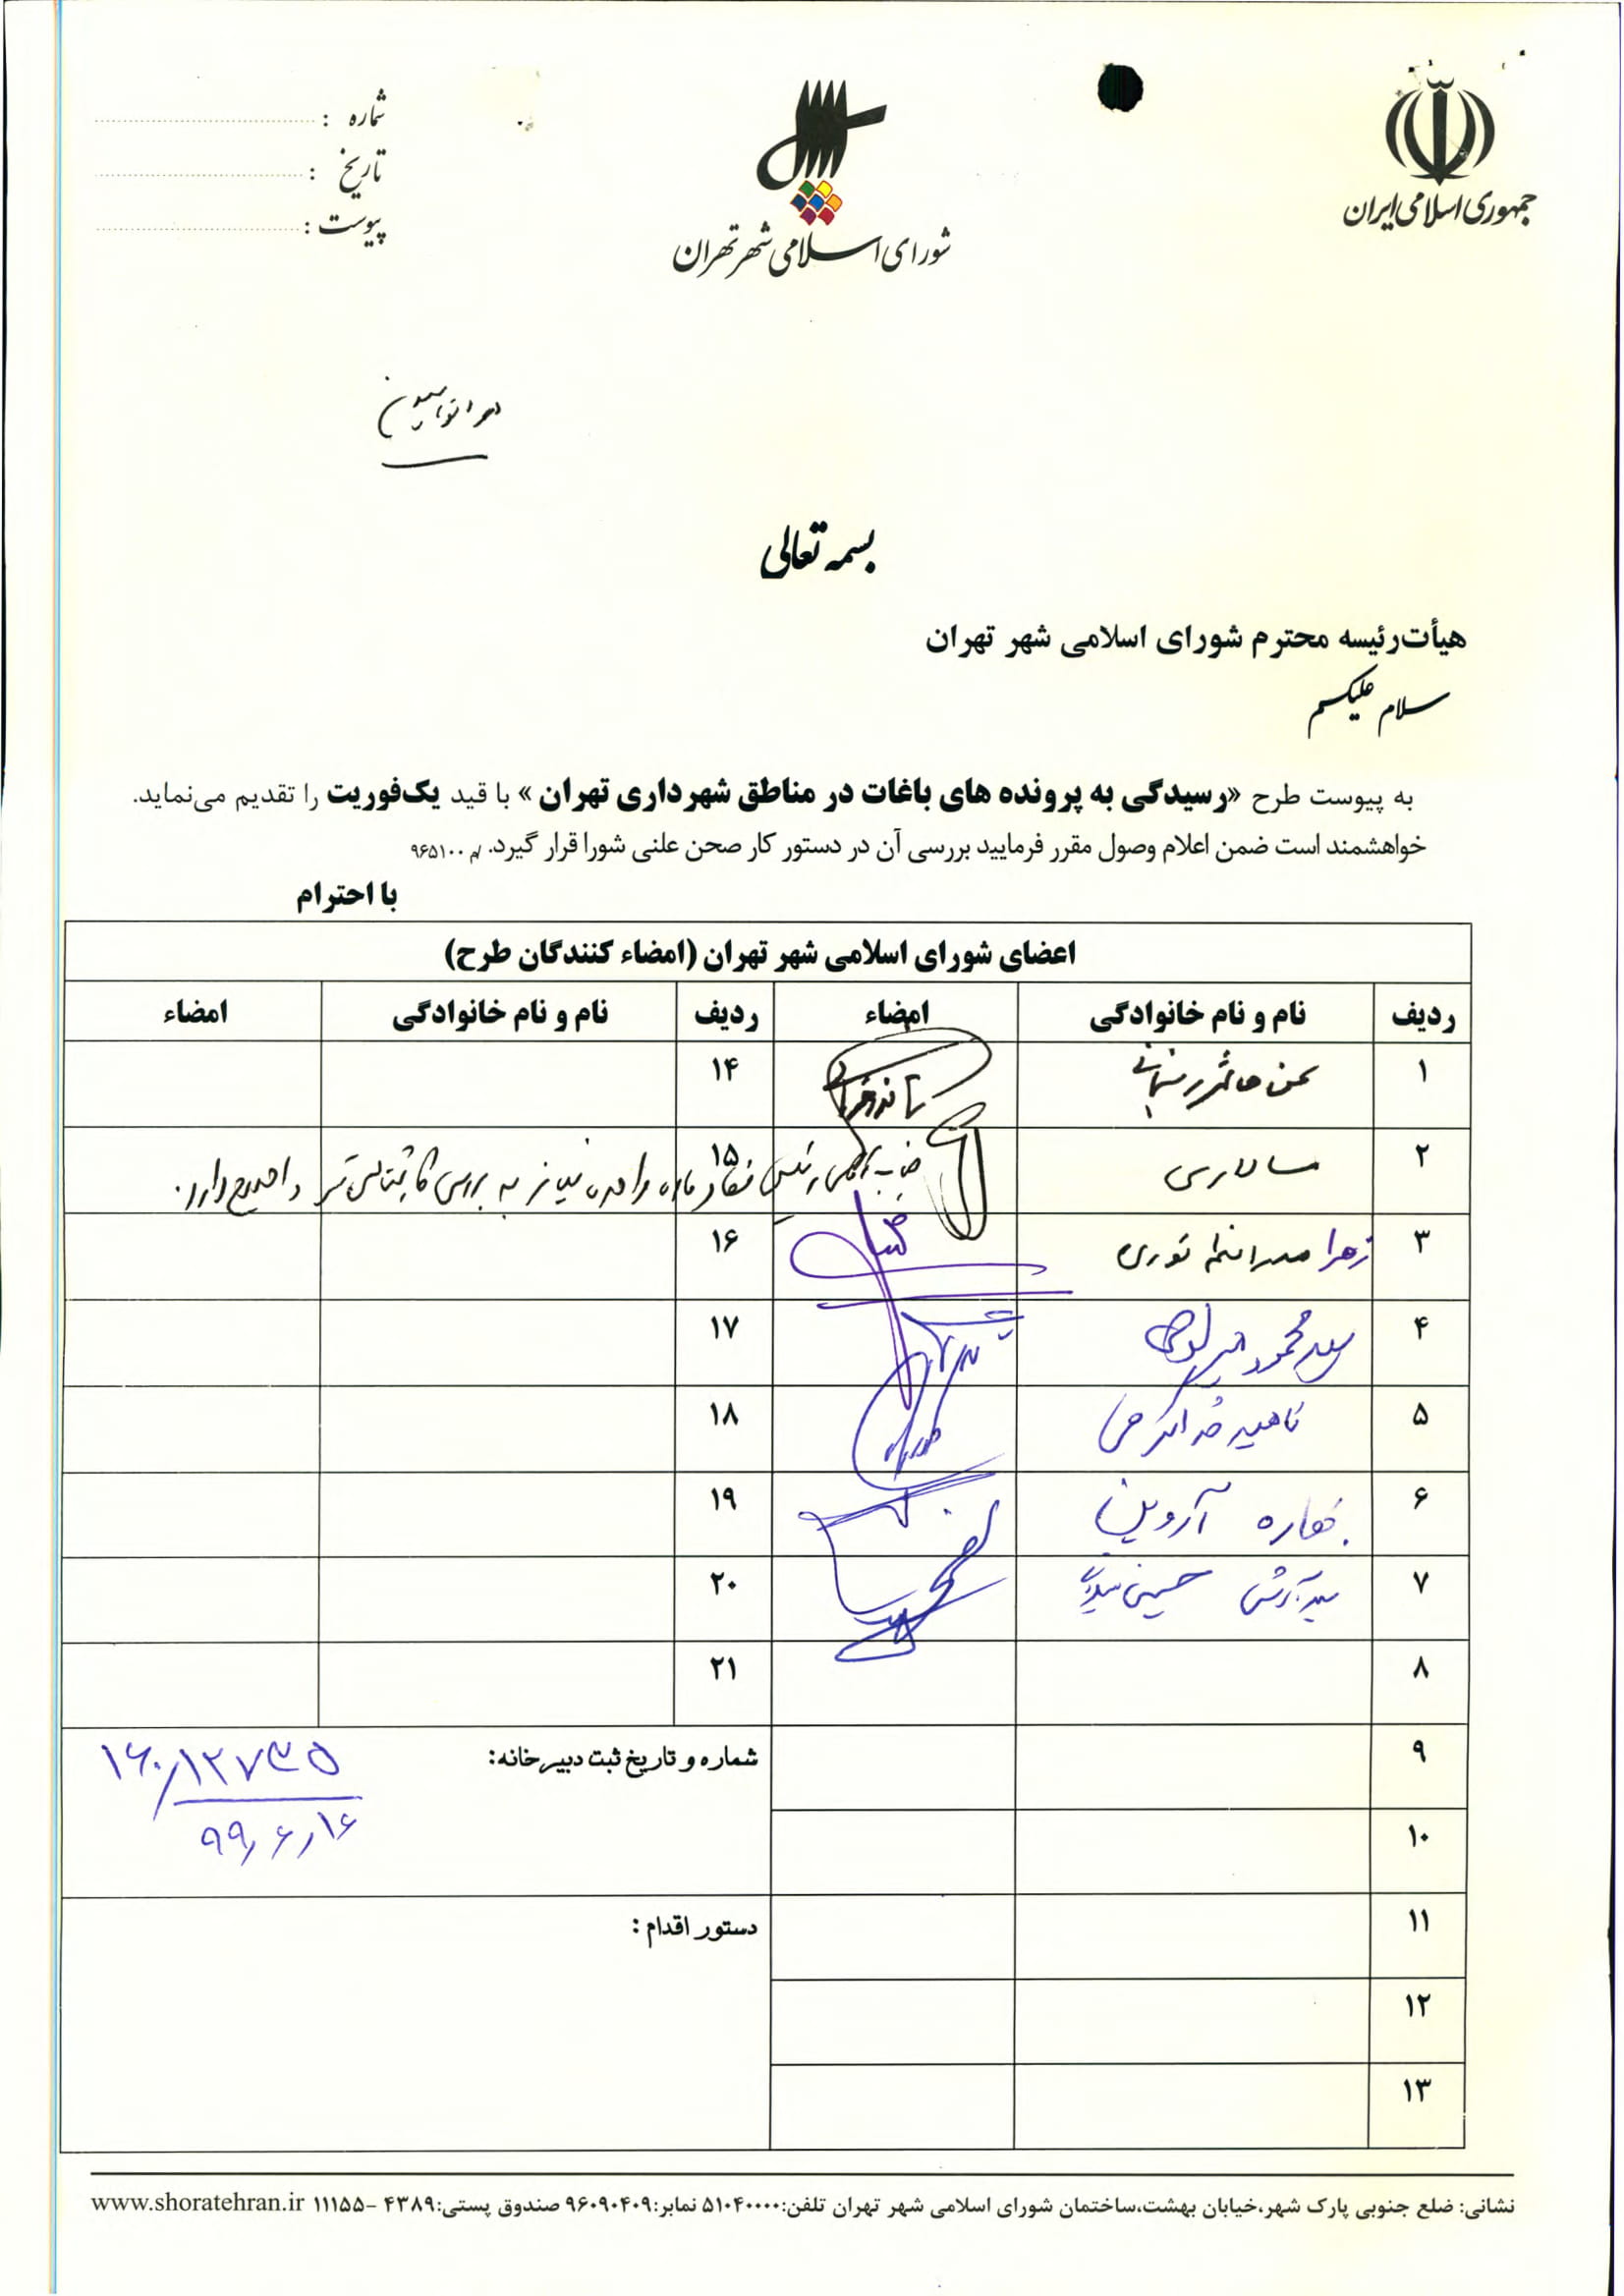 جمهوری اسلامی ایران
شورای اسلامی شهر تهران
شماره :
تاریخ :
پیوست :
بسمه تعالی
هیأت‌رئیسه محترم شورای اسلامی شهر تهران
سلام علیکم
به پیوست طرح «رسیدگی به پرونده های باغات در مناطق شهرداری تهران» با قید یک‌فوریت را تقدیم می‌نماید.
خواهشمند است ضمن اعلام وصول مقرر فرمایید بررسی آن در دستور کار صحن علنی شورا قرار گیرد. /م ۹۶۵۱۰۰
با احترام
اعضای شورای اسلامی شهر تهران (امضاء کنندگان طرح)
ردیف نام و نام خانوادگی امضاء ردیف نام و نام خانوادگی امضاء
۱ محسن هاشمی رفسنجانی ۱۴
۲ سالاری ۱۵
۳ زهرا صدراعظم نوری ۱۶
۴ سید محمود میرلوحی ۱۷
۵ ناهید خداکرمی ۱۸
۶ بهاره آروین ۱۹
۷ سید آرش حسینی میلانی ۲۰
۸ ۲۱
۹ شماره و تاریخ ثبت دبیرخانه: ۱۶۰/۱۲۷۳۵
۹۹/۶/۱۶
۱۰
۱۱ دستور اقدام :
۱۲
۱۳
نشانی: ضلع جنوبی پارک شهر،خیابان بهشت،ساختمان شورای اسلامی شهر تهران تلفن:۵۱۰۴۰۰۰۰ نمابر:۹۶۰۹۰۴۰۹ صندوق پستی:۴۳۸۹ -۱۱۱۵۵ www.shoratehran.ir